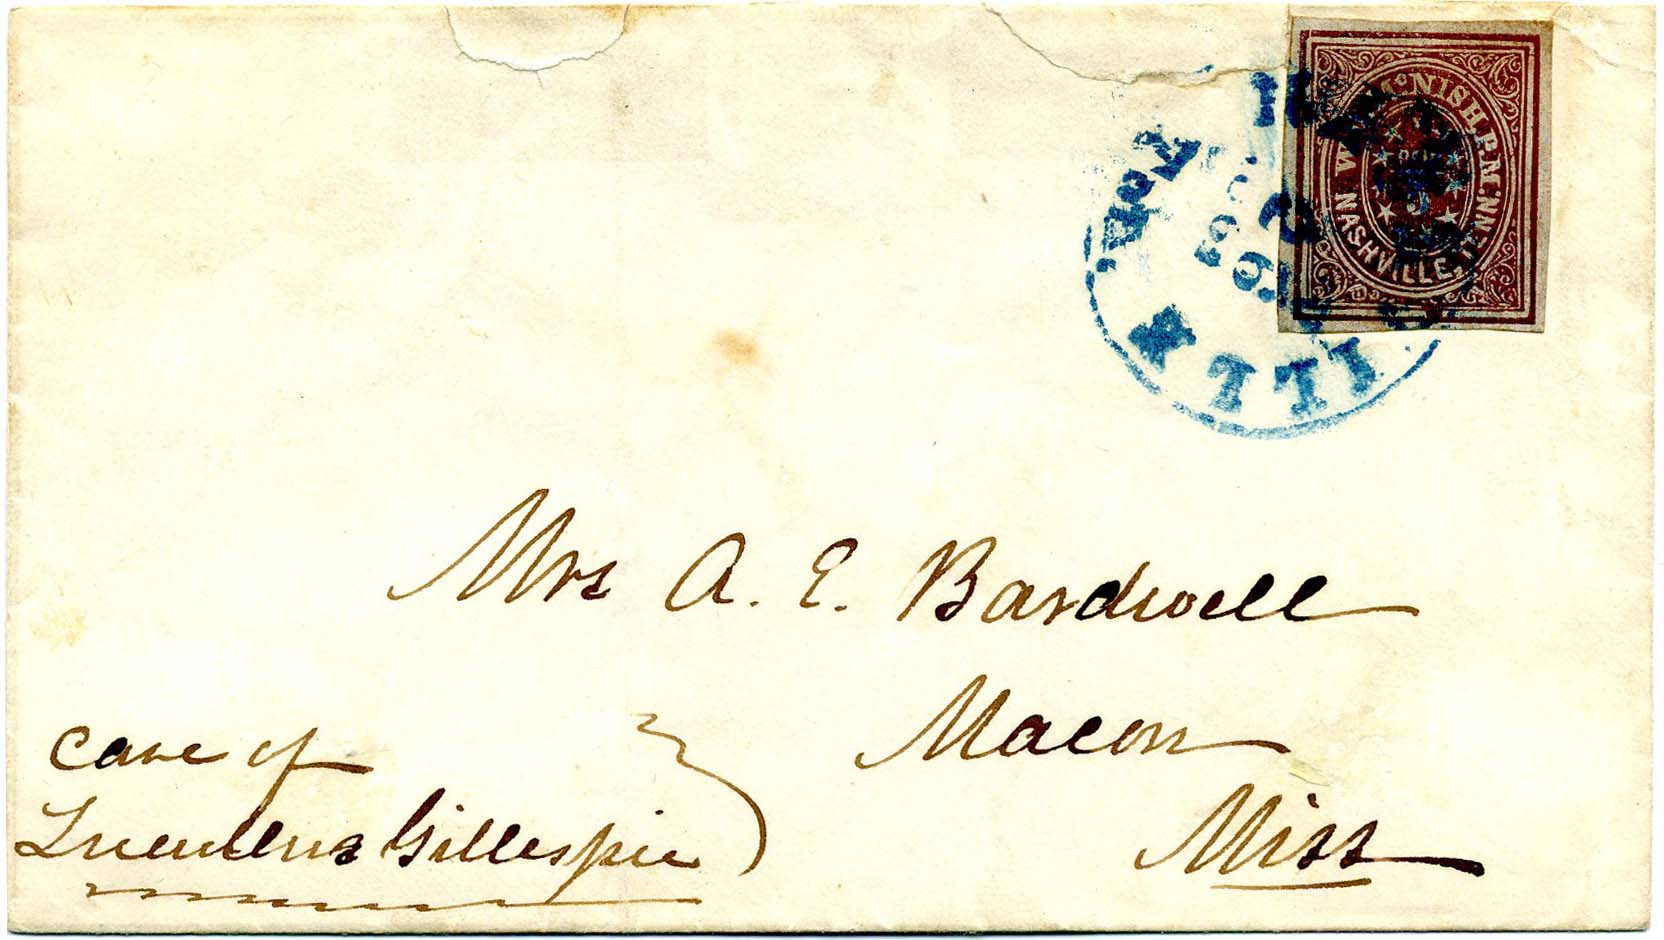 W. D. McNISH. P.M.
NASHVILLE, TENN.
5
Ten.
61
Mrs A. E. Bardwell
Macon
Miss
care of
Lucullus Gillespie